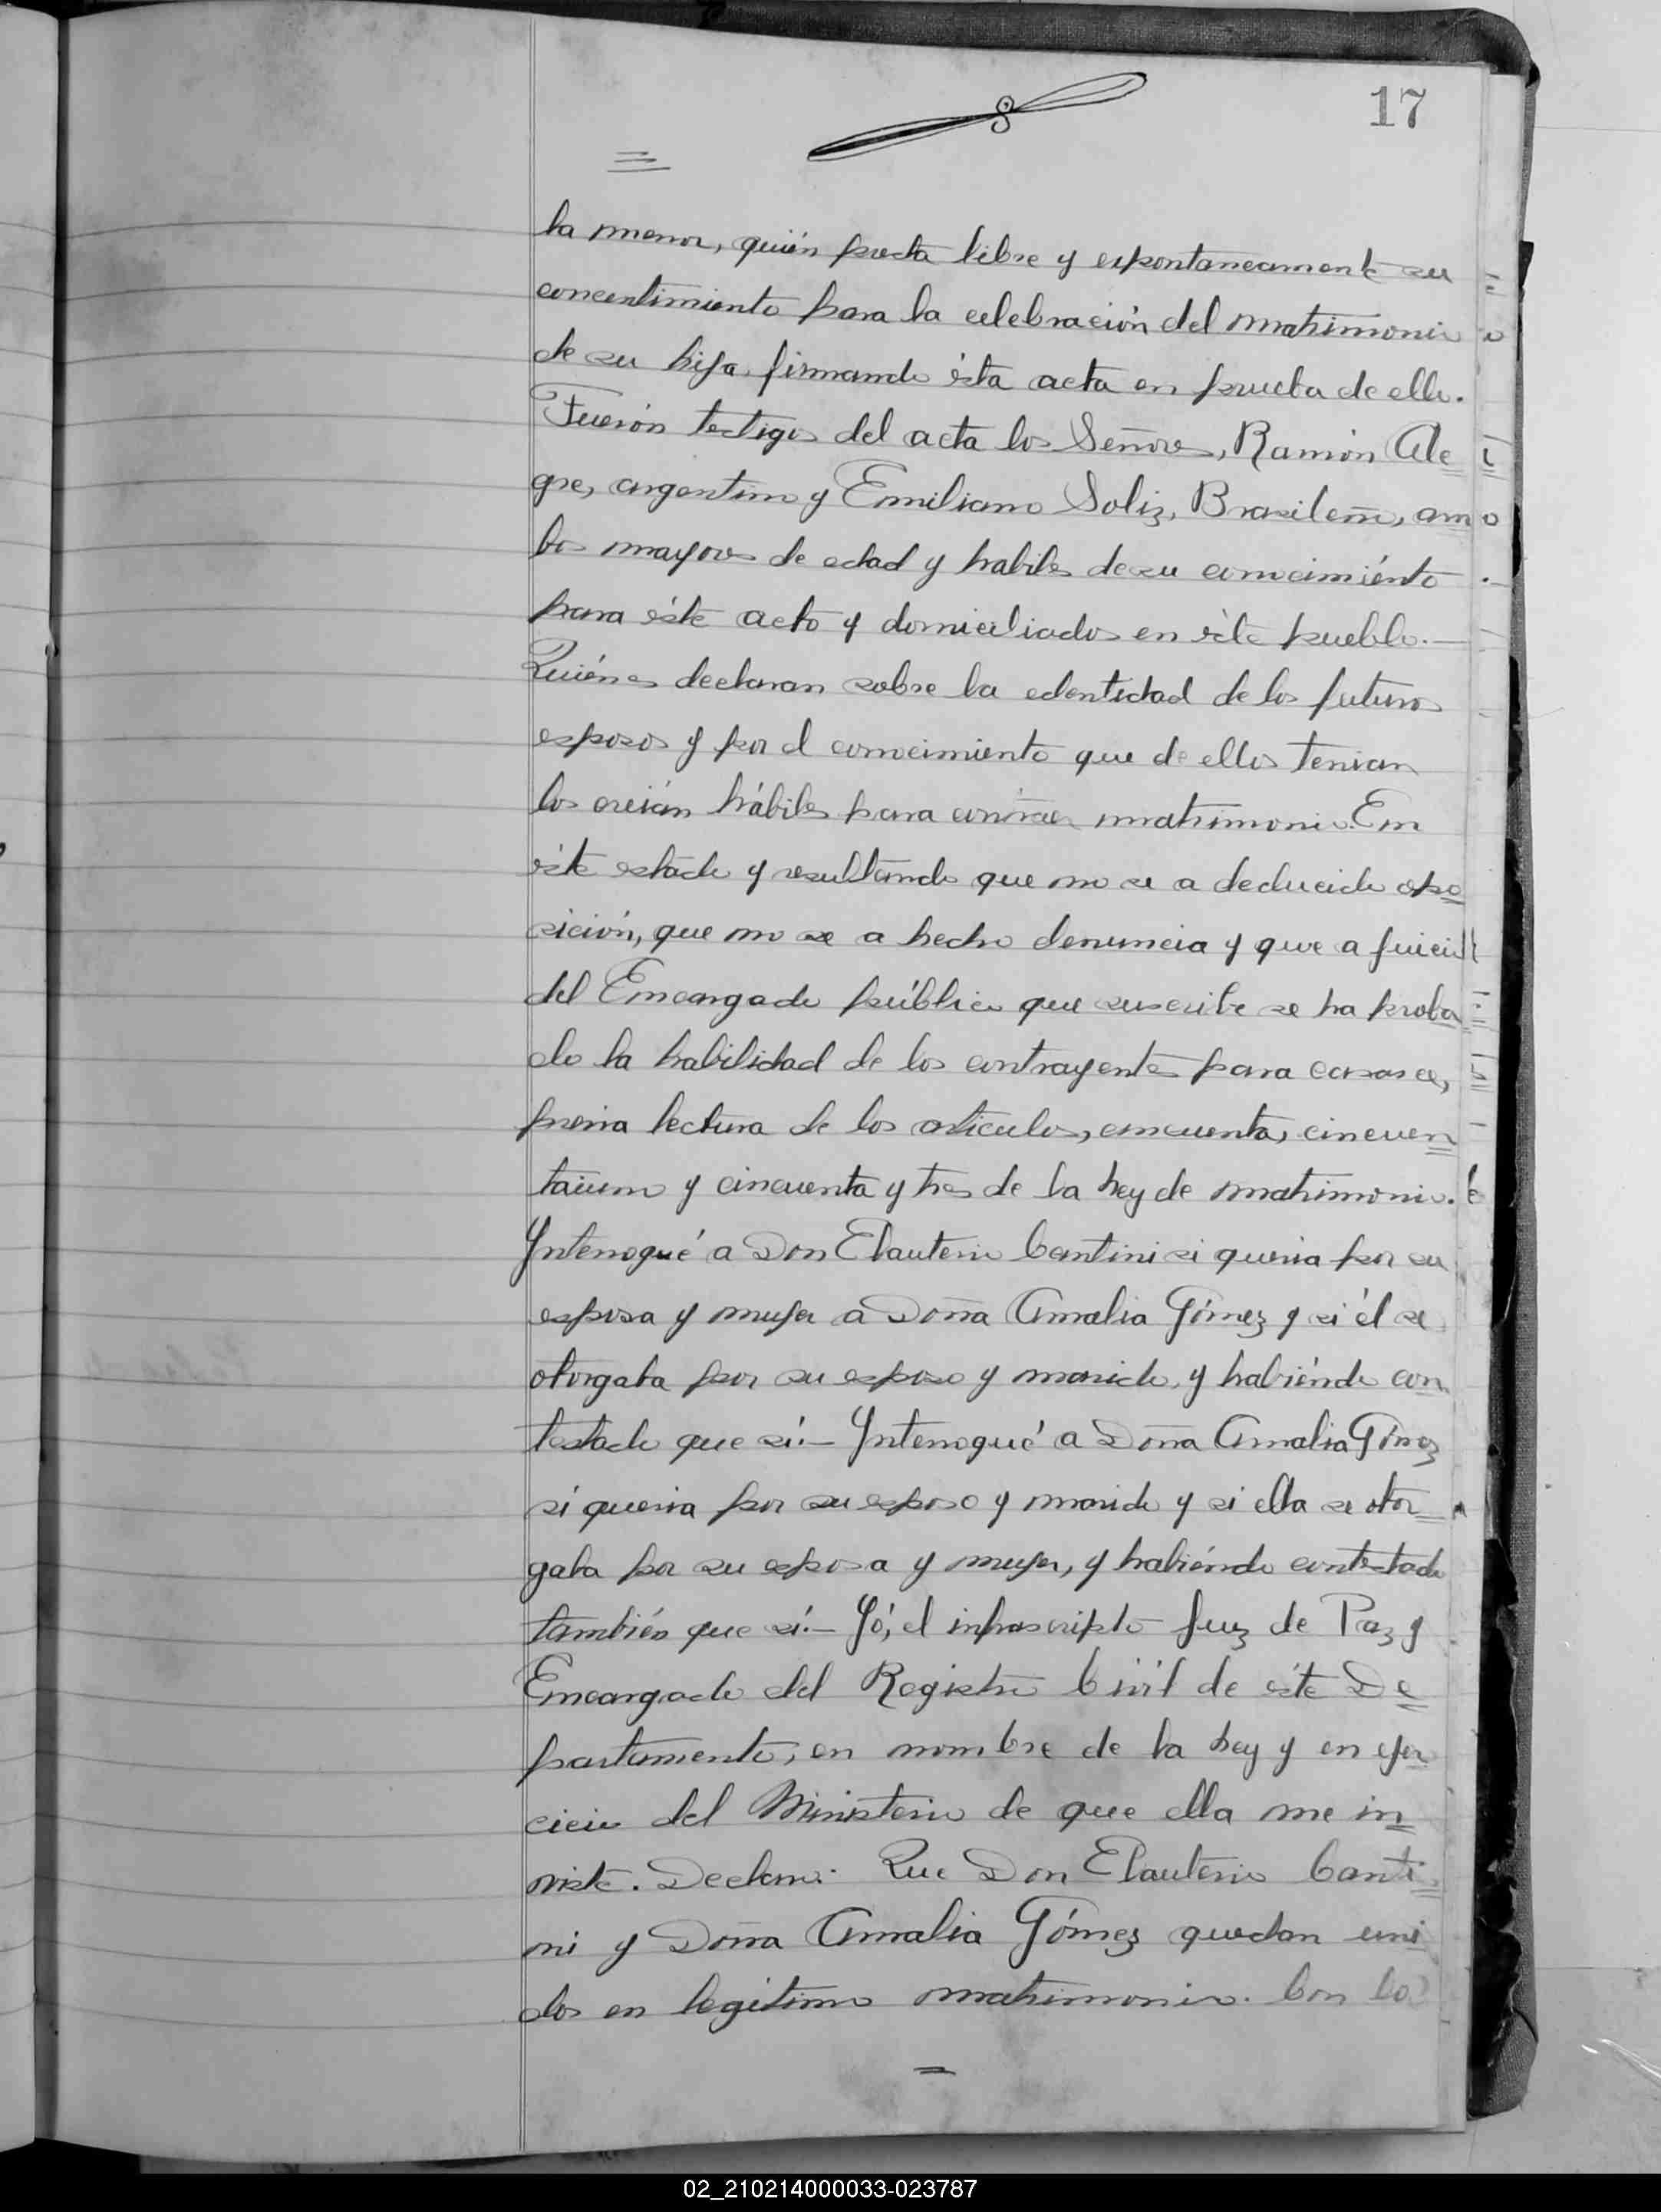 17
la menor, quién presta libre y espontaneamente su
concentimiento para la celebración del matrimonio
de su hija, firmando ésta acta en prueba de ello.
Fuerón testigos del acta los Señores, Ramón Ale
gre, argentino y Emiliano Soliz, Brasileño, am
bos mayores de edad y habiles de su conocimiénto
para éste acto y domiciliados en éste pueblo.—
Quiénes declaran sobre la edentidad de los futuros
esposos y por el conocimiento que de ellos tenian
los creián hábiles para contraer matrimonio. En
éste estado y resultando que no se a deducido opo
sición, que no se a hecho denuncia y que a juicio
del Encargado público que suscribe se ha proba
do la habilidad de los contrayentes para casarse,
previa lectura de los articulos, cincuenta, cincuen
taiuno y cincuenta y tres de la ley de matrimonio.
Ynterrogué a Don Elauterio Cantini si queria por su
esposa y mujer a Doña Amalia Gómez y si él se
otorgaba por su esposo y marido, y habiéndo con
testado que sí.— Ynterrogué a Doña Amalia Gómez
si queria por su esposo y marido y si ella se otor
gaba por su esposa y mujer, y habiéndo contestado
también que sí.— Yó, el infrascripto Juez de Paz y
Encargado del Registro Civíl de éste De
partamento, en nombre de la ley y en ejer
cicio del Ministerio de que ella me in
viste. Declaro: Que Don Elauterio Canti
ni y Doña Amalia Gómez quedan uni
dos en legitimo matrimonio. Con lo
02_210214000033-023787